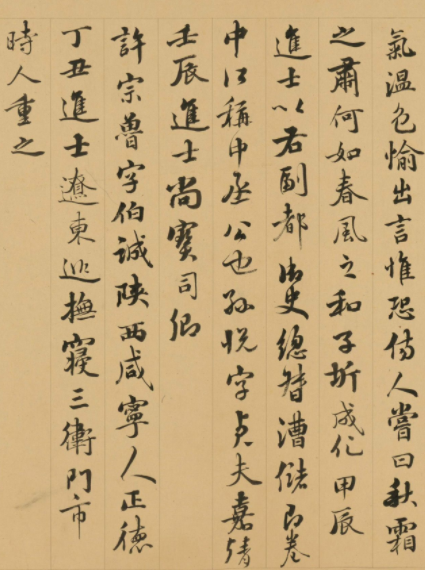 氣溫色愉出言惟恐傷人嘗曰秋霜
之肅何如春風之和子圻成化甲辰
進士以右副都御史總督漕儲即卷
中所稱中丞公也孫悅字貞夫嘉靖
壬辰進士尚寶司卿
許宗魯字伯誠陝西咸寧人正德
丁丑進士遼東巡撫寢三衛門市
時人重之